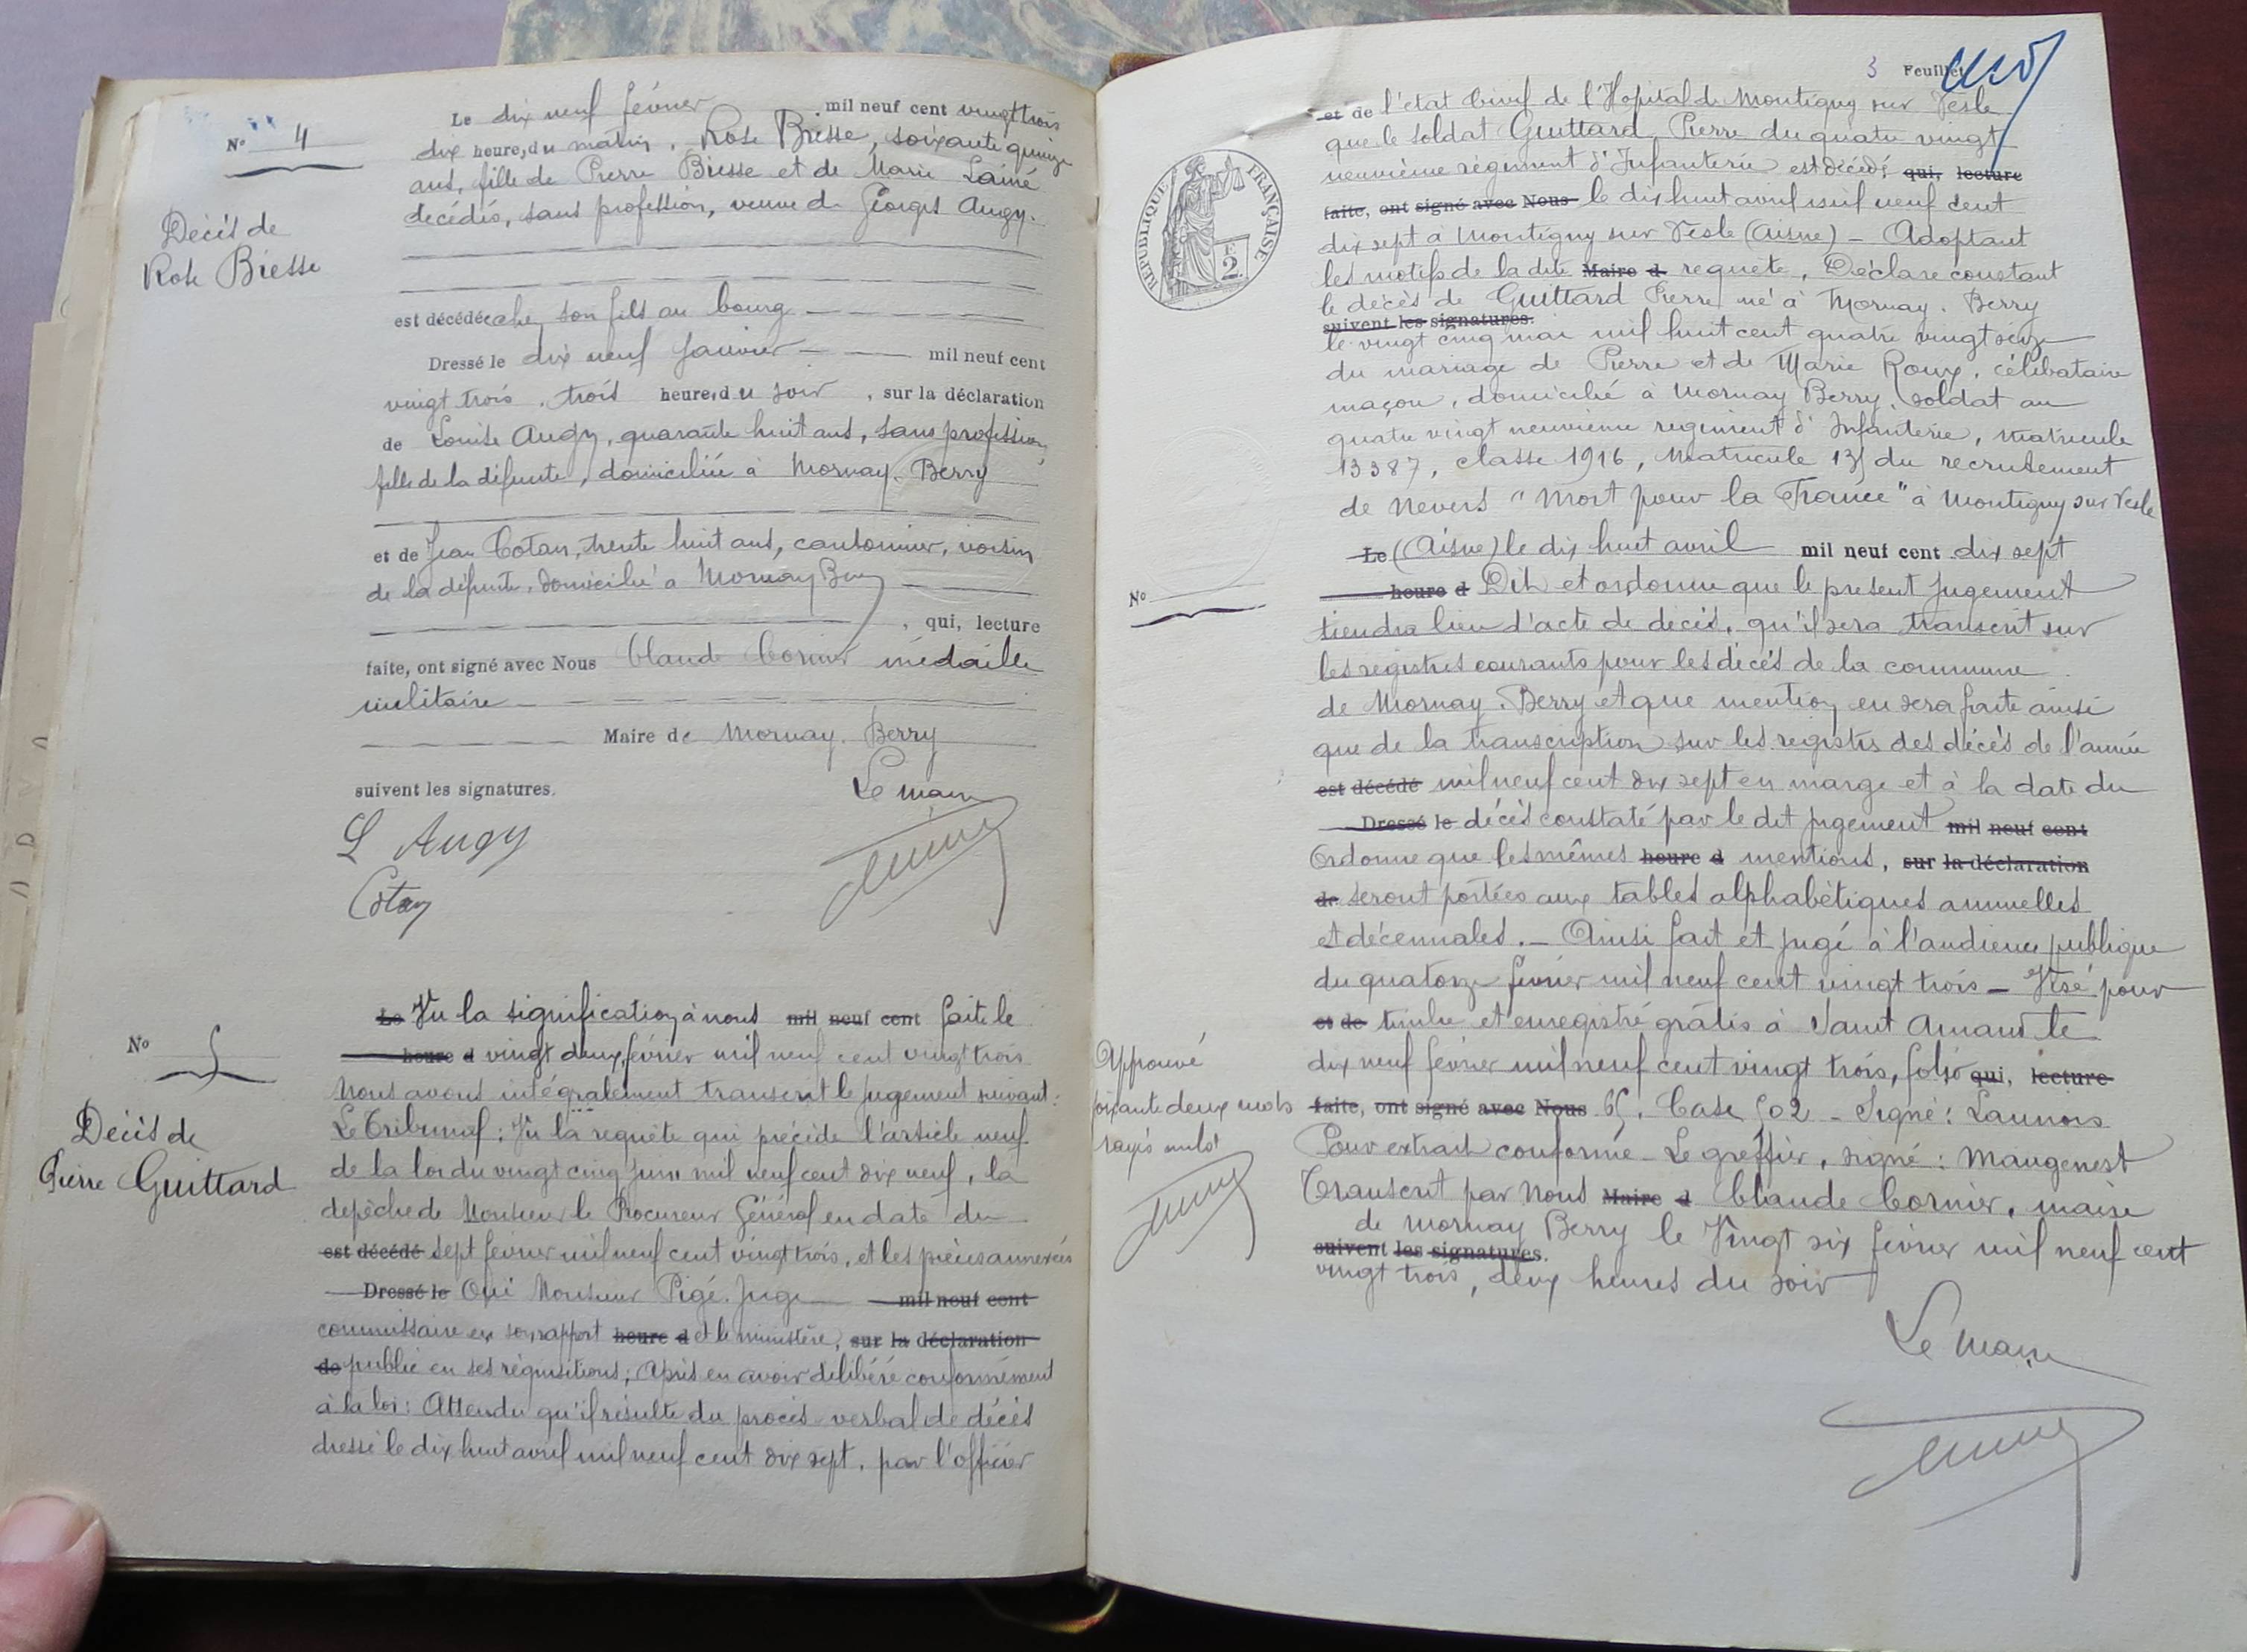 N° 4
Décès de
Rose Biesse
Le dix neuf février mil neuf cent vingt trois
dix heure, du matin, Rose Biesse, soixante quinze
ans, fille de Pierre Biesse et de Marie Lainé
décédés, sans profession, veuve de Georges Augy.
est décédée chez son fils au bourg
Dressé le dix neuf janvier mil neuf cent
vingt trois, trois heure, du soir, sur la déclaration
de Louise Augy, quarante huit ans, sans profession,
fille de la défunte, domiciliée à Mornay-Berry
et de Jean Cotan, trente huit ans, cantonnier, voisin
de la défunte, domicilié à Mornay Berry
, qui, lecture
faite, ont signé avec Nous Claude Cornier médaillé
militaire
Maire de Mornay-Berry
suivent les signatures.
Le maire
L Augy
Cotan
N° 5
Décès de
Pierre Guittard
Le Vu la signification à nous mil neuf cent faite le
heure d vingt deux février mil neuf cent vingt trois
Nous avons intégralement transcrit le jugement suivant:
Le Tribunal: Vu la requête qui précède l'article neuf
de la loi du vingt cinq juin mil neuf cent dix neuf, la
dépêche de Monsieur le Procureur Général en date du
est décédé sept février mil neuf cent vingt trois, et les pièces annexées
Dressé le Ouï Monsieur Pigé. Juge mil neuf cent
commissaire en son rapport heure d et le ministère, sur la déclaration
de public en ses réquisitions; Après en avoir délibéré conformément
à la loi: Attendu qu'il résulte du procès-verbal de décès
dressé le dix huit avril mil neuf cent dix sept, par l'officier
3 Feuillet
RÉPUBLIQUE FRANÇAISE
E 2
et de l'état Civil de l'Hopital de Montigny sur Vesle
que le soldat Guittard Pierre du quatre vingt
neuvième régiment d'Infanterie est décédé qui, lecture
faite, ont signé avec Nous le dix huit avril mil neuf cent
dix sept à Montigny sur Vesle (Aisne) - Adoptant
les motifs de la dite Maire d requête, Déclare constant
le décès de Guittard Pierre né à Mornay-Berry
suivent les signatures.
le vingt cinq mai mil huit cent quatre vingt seize
du mariage de Pierre et de Marie Roux, célibataire
maçon, domicilié à Mornay Berry, soldat au
quatre vingt neuvième régiment d'Infanterie, matricule
13387, classe 1916, Matricule 135 du recrutement
de Nevers "Mort pour la France" à Montigny sur Vesle
Le (Aisne) le dix huit avril mil neuf cent dix sept
heure d Dit et ordonne que le présent jugement
N°
tiendra lieu d'acte de décès, qu'il sera transcrit sur
les registres courants pour les décès de la commune
de Mornay-Berry et que mention en sera faite ainsi
que de la transcription sur les registres des décès de l'année
est décédé mil neuf cent dix sept en marge et à la date du
Dressé le décès constaté par le dit jugement mil neuf cent
Ordonne que les mêmes heure d mentions, sur la déclaration
de seront portées aux tables alphabétiques annuelles
et décennales. - Ainsi fait et jugé à l'audience publique
du quatorze février mil neuf cent vingt trois - Visé pour
et de timbre et enregistré gratis à Saint Amand le
dix neuf février mil neuf cent vingt trois, folio qui, lecture
faite, ont signé avec Nous 65. Case 502 - Signé: Launois
Pour extrait conforme - Le greffier, signé: Maugenest
Transcrit par Nous Maire d Claude Cornier, maire
de Mornay Berry le Vingt six février mil neuf cent
suivent les signatures.
vingt trois, deux heures du soir
Le maire
Approuvé
soixante deux mots
rayés nuls